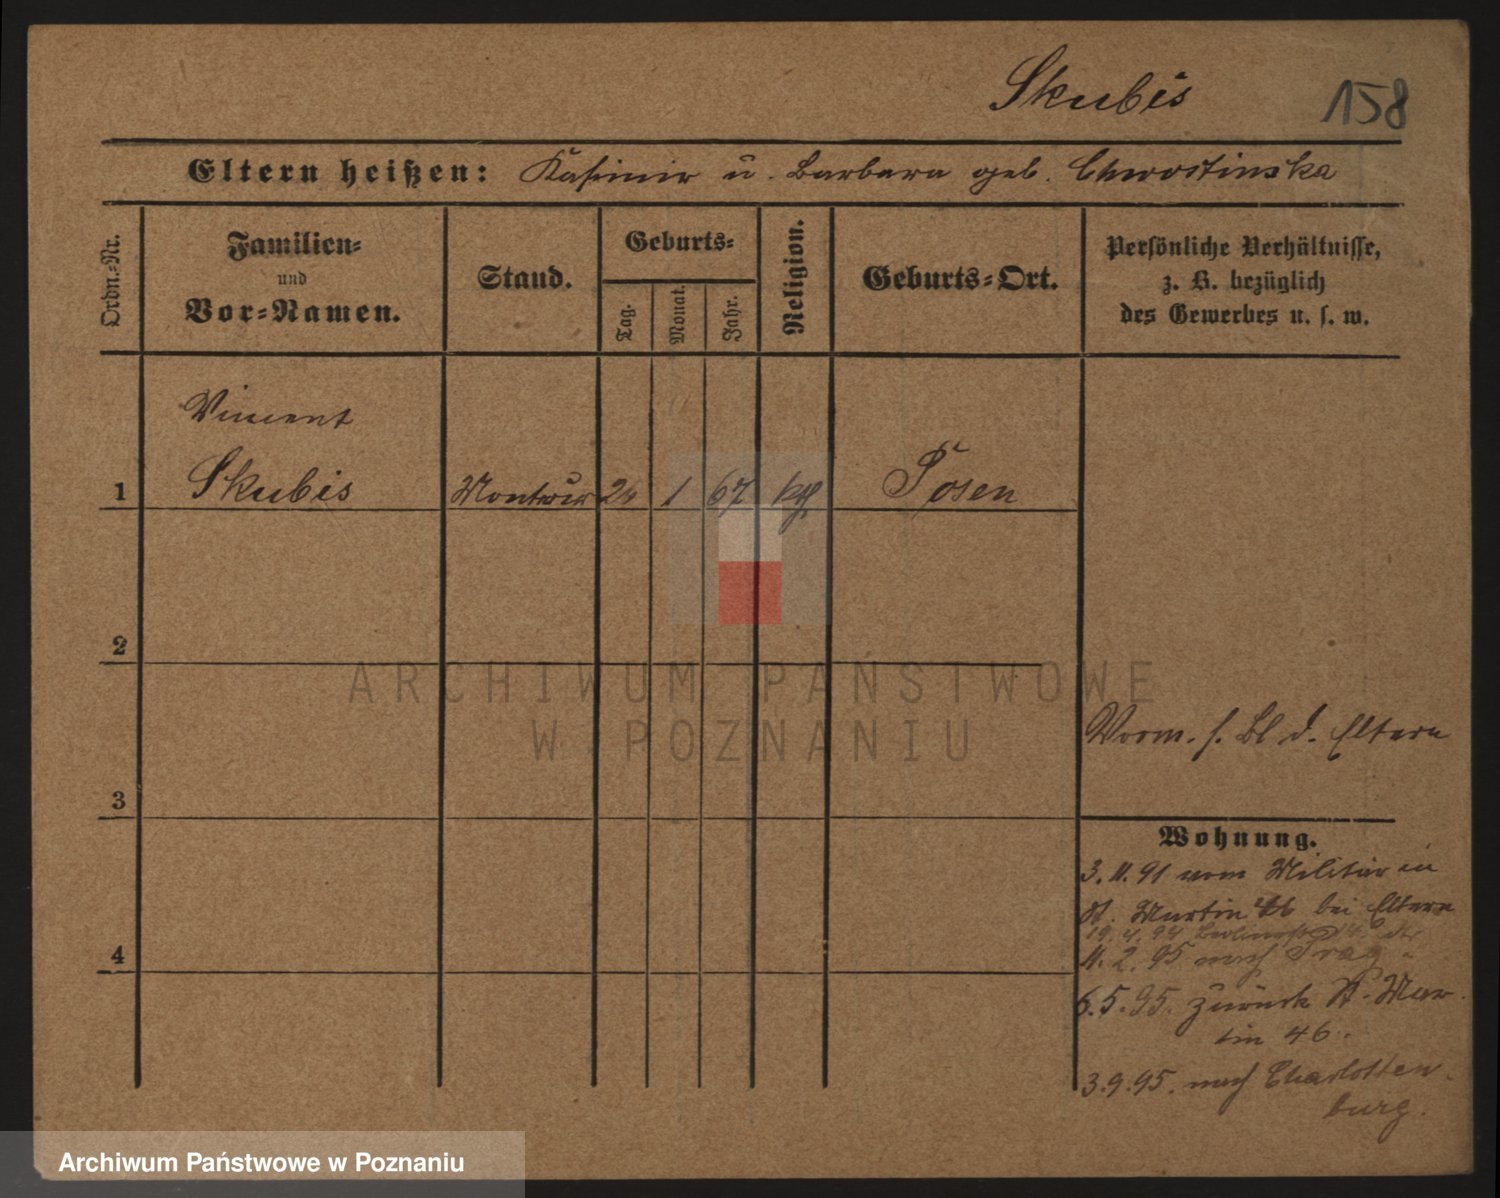 Skubis 158
Eltern heißen: Kasimir u. Barbara geb. Chwostinska
Ordn.=Nr.
Familien=
und
Vor=Namen.
Stand.
Geburts=
Tag.
Monat.
Jahr.
Religion.
Geburts=Ort.
Persönliche Verhältnisse,
z. B. bezüglich
des Gewerbes u. s. w.
Vincent
1 Skubis Monteur 1 67 kth Posen
2
3
4
Vorm. s. Bl d. Eltern
Wohnung.
3.11.91 vom Militär in
St. Martin 46 bei Eltern
19.4.94
11.2.95 nach Prag
6.5.95. zurück St. Mar
tin 46.
3.9.95. nach Charlotten
burg.
ARCHIWUM PAŃSTWOWE
W POZNANIU
Archiwum Państwowe w Poznaniu